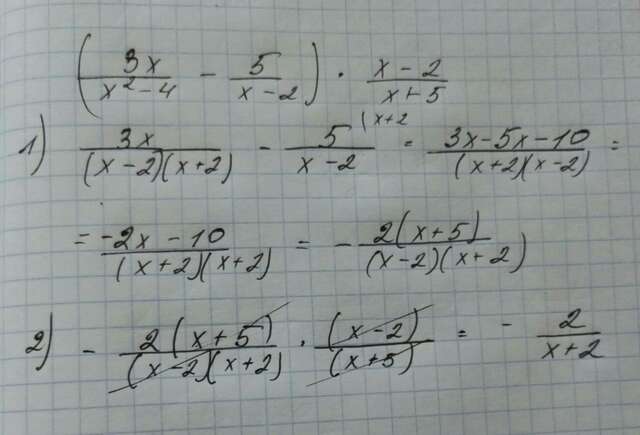 (3x/(x²-4) - 5/(x-2)) · (x-2)/(x+5)
1) 3x/((x-2)(x+2)) - 5/(x-2) (x+2 = (3x-5x-10)/((x+2)(x-2)) =
= (-2x-10)/((x+2)(x+2)) = - 2(x+5)/((x-2)(x+2))
2) - 2(x+5)/((x-2)(x+2)) · (x-2)/(x+5) = - 2/(x+2)